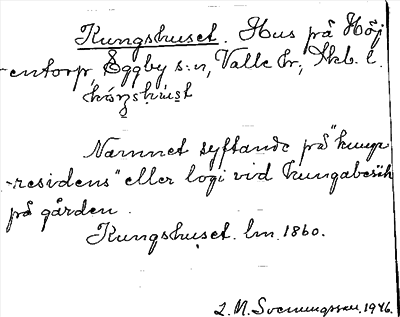 Kungshuset. Hus på Höj
-entorp, Eggby s:n, Valle hr, Skb. l.
Namnet syftande på "kunga
-residens" eller logi vid kungabesök
på gården.
Kungshuset. lm. 1860.
L. M. Svenungsson, 1946.